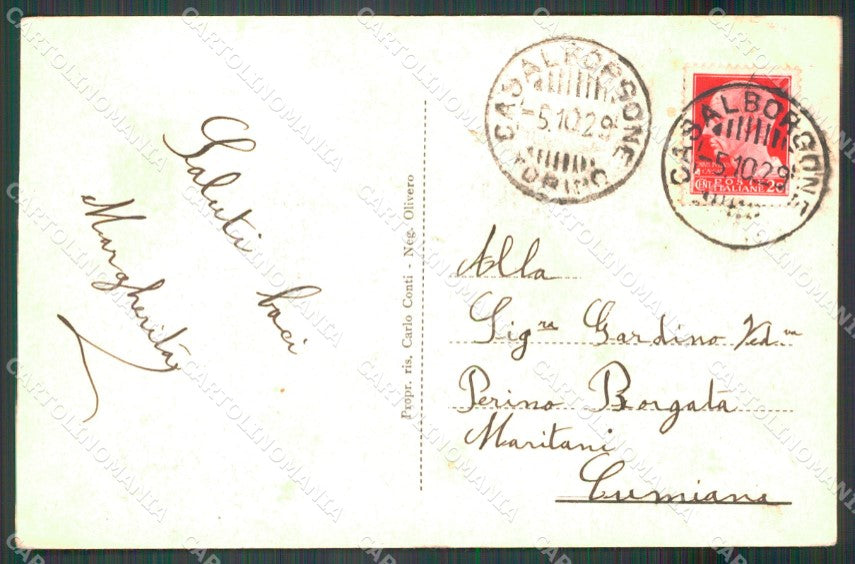 Saluti baci
Margherita
Propr. ris. Carlo Conti - Neg. Olivero
CASALBORGONE
-5.10.29
TORINO
CASALBORGONE
-5.10.29
POSTE
ITALIANE
CENT
Alla
Sig.ra Gardino Ved.va
Perino Borgata
Maritani
Cumiana
CARTOLINOMANIA